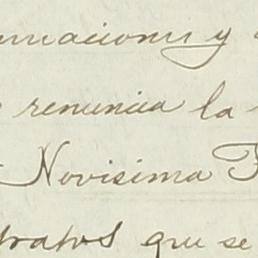 maciones y
renuncia la
Novisima
tratos que se